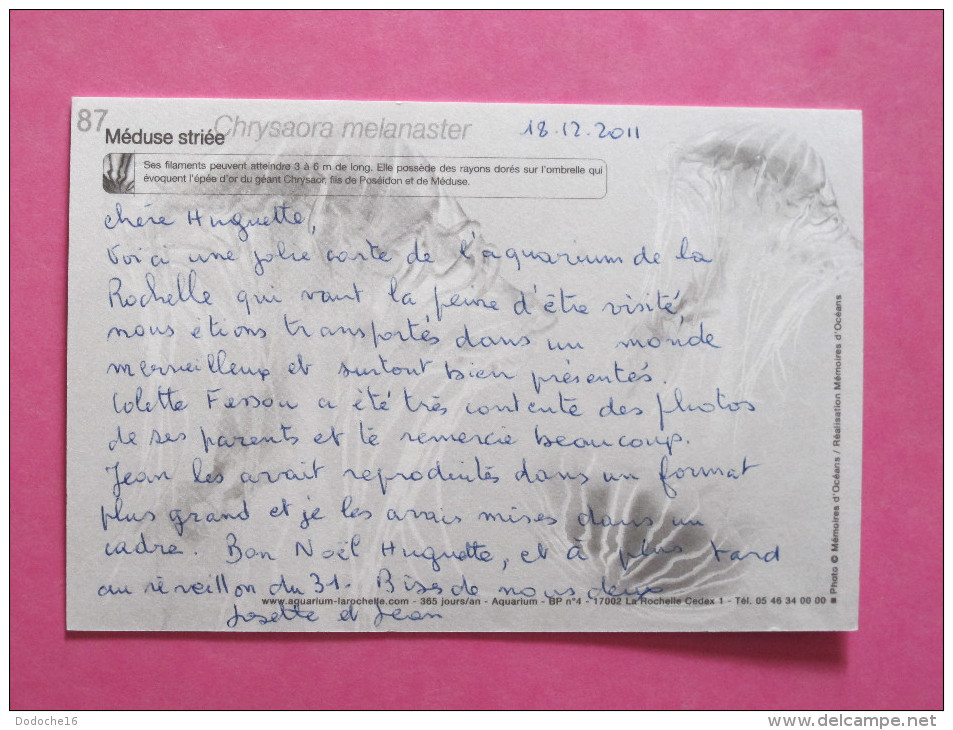 87
Méduse striée Chrysaora melanaster
18.12.2011
Ses filaments peuvent atteindre 3 à 6 m de long. Elle possède des rayons dorés sur l'ombrelle qui
évoquent l'épée d'or du géant Chrysaor, fils de Poséidon et de Méduse.
chère Huguette,
Voici une jolie carte de l'aquarium de la
Rochelle qui vaut la peine d'être visité
nous étions transportés dans un monde
merveilleux et surtout bien présentés.
Colette a été très contente des photos
de ses parents et te remercie beaucoup.
Jean les avait reproduites dans un format
plus grand et je les avais mises dans un
cadre. Bon Noël Huguette, et à plus tard
au réveillon du 31. Bises de nous deux
Josette et Jean
www.aquarium-larochelle.com - 365 jours/an - Aquarium - BP n°4 - 17002 La Rochelle Cedex 1 - Tél. 05 46 34 00 00
Photo © Mémoires d'Océans / Réalisation Mémoires d'Océans
Dodoche16
www.delcampe.net